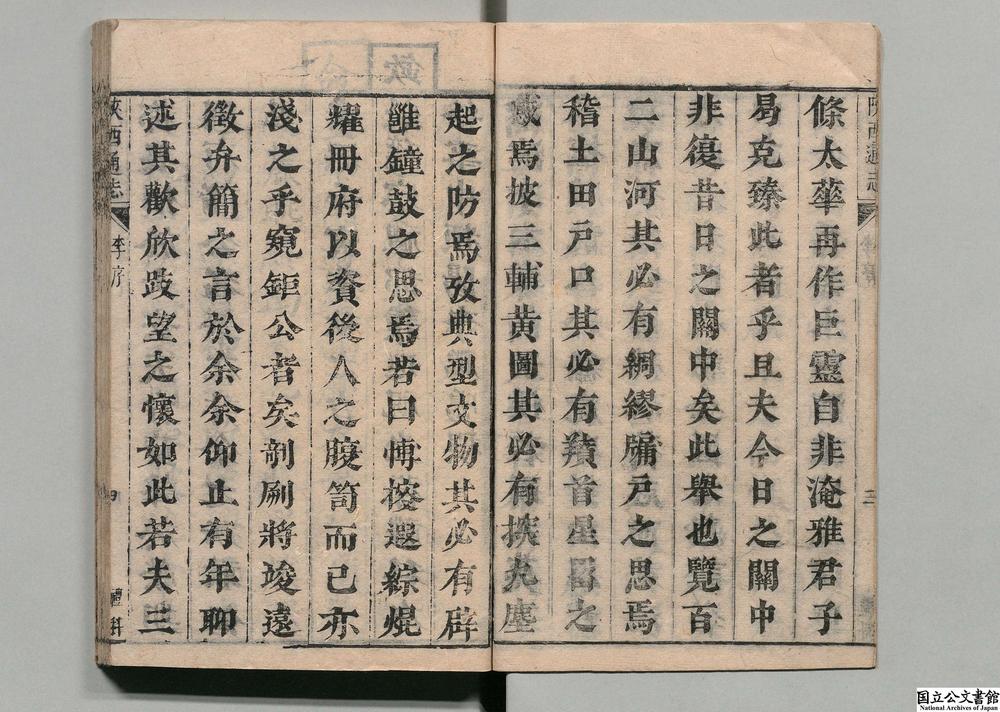 條太華再作巨靈自非淹雅君子
曷克臻此者乎且夫今日之關中
非復昔日之關中矣此舉也覽百
二山河其必有綢繆牖戶之思焉
稽土田戶口其必有羵首星罶之
感焉披三輔黃圖其必有探丸塵
起之防焉攷典型文物其必有辟
雝鐘鼓之思焉若曰博搜遐綜焜
耀冊府以資後人之腹笥而已亦
淺之乎窺鉅公者矣剞劂將竣遠
徵弁簡之言於余余仰止有年聊
述其歡欣跂望之懷如此若夫三
陝西通志
三
陝西通志
李序
四
禮科
国立公文書館
National Archives of Japan